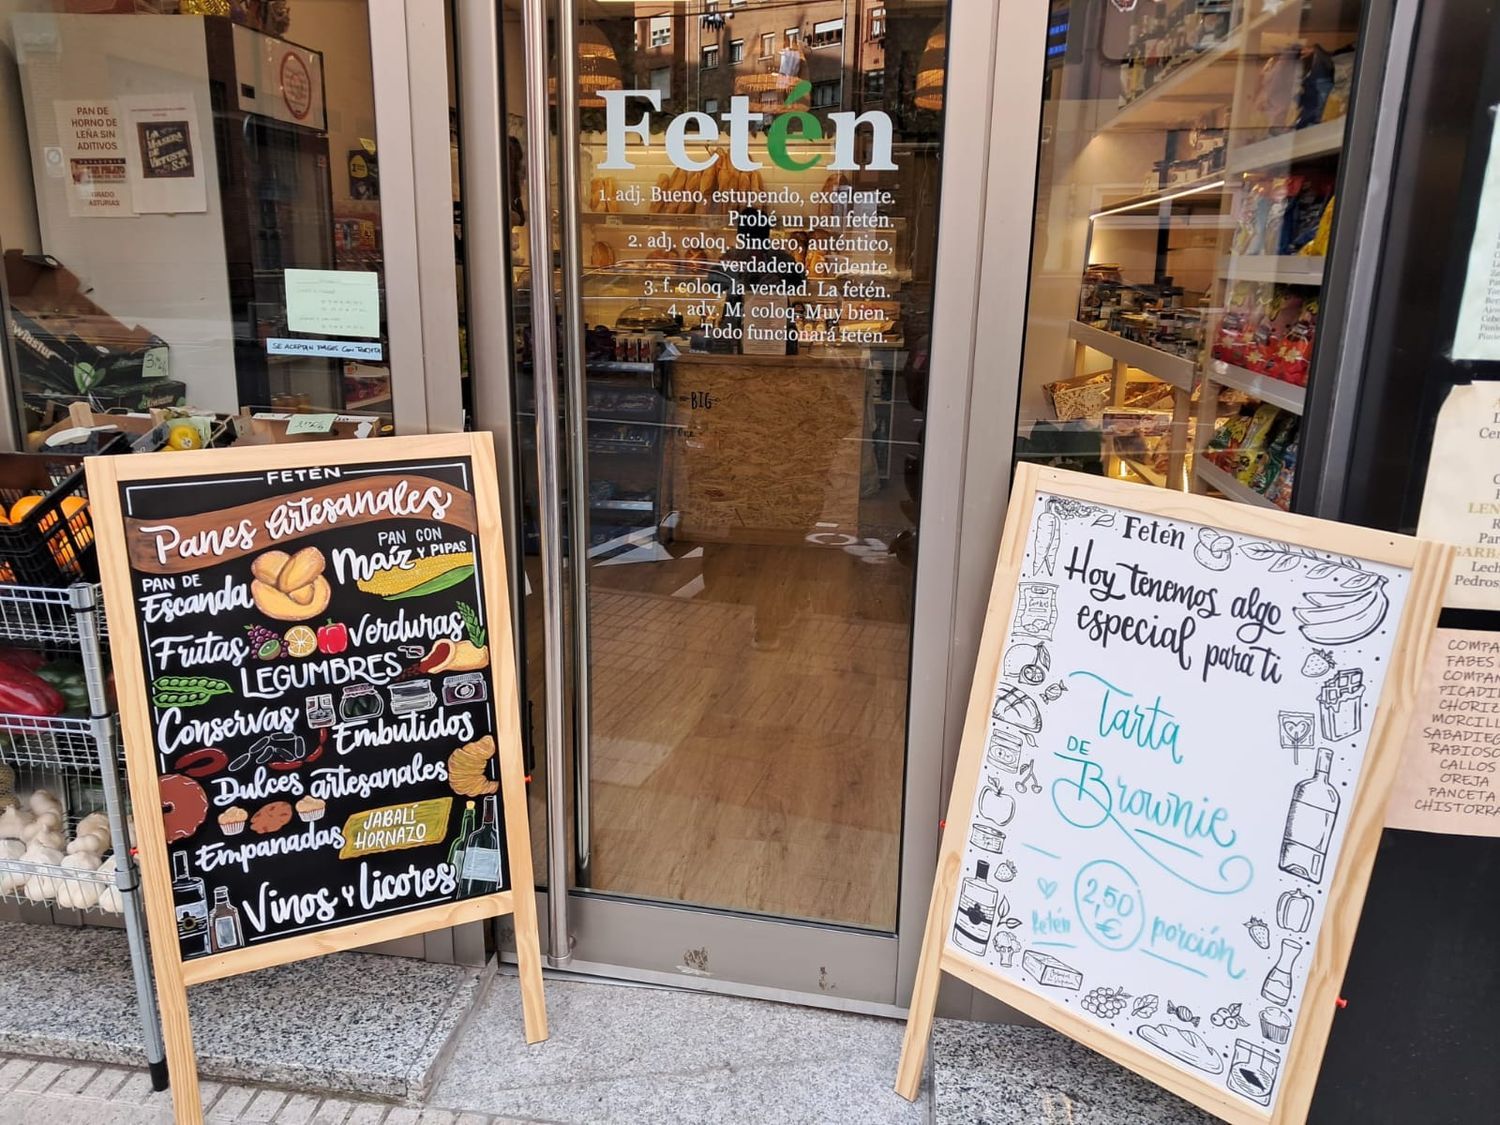 PAN DE
HORNO DE
LEÑA SIN
ADITIVOS
GRADO
ASTURIAS
SE ACEPTAN PAGOS CON TARJETA
Fetén
1. adj. Bueno, estupendo, excelente.
Probé un pan fetén.
2. adj. coloq. Sincero, auténtico,
verdadero, evidente.
3. f. coloq. la verdad. La fetén.
4. adv. M. coloq. Muy bien.
Todo funcionará fetén.
BIG
FETÉN
Panes Artesanales
PAN DE
Escanda
PAN CON
Maíz Y PIPAS
Frutas
Verduras
LEGUMBRES
Conservas
Embutidos
Dulces artesanales
Empanadas
JABALÍ
HORNAZO
Vinos y licores
Fetén
Hoy tenemos algo
especial para ti
Tarta
DE
Brownie
Fetén
2,50
€
porción
COMPA
FABES
COMPAN
PICADI
CHORIZ
MORCILL
SABADIEG
RABIOSO
CALLOS
OREJA
PANCETA
CHISTORRA